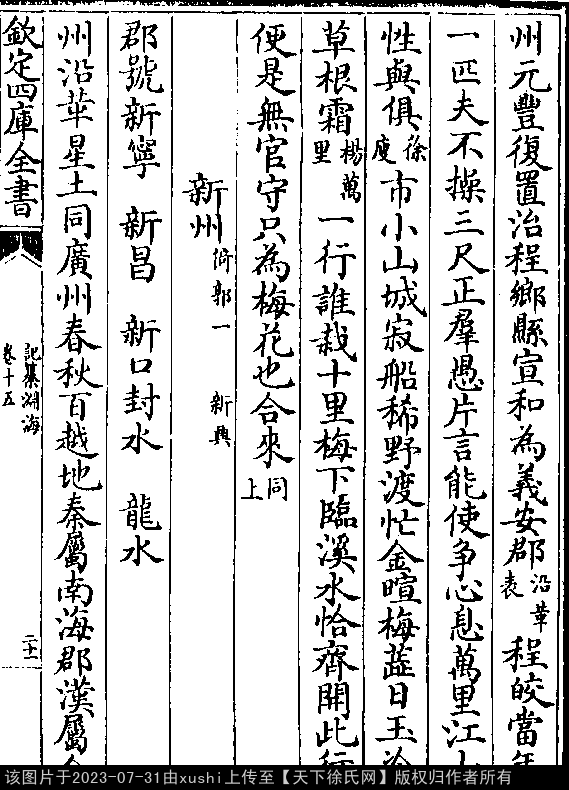 州元豐復置治程鄉縣宣和為義安郡沿革表 程皎當年
一匹夫不操三尺正羣愚片言能使争心息萬里江
性與俱徐庾市小山城寂船稀野渡忙金暄梅蕋日玉冷
草根霜楊萬里一行誰栽十里梅下臨溪水恰齊開此行
便是無官守只為梅花也合來同上
新州倚郭一 新興
郡號新寧 新昌 新口封水 龍水
州沿革星土同廣州春秋百越地秦屬南海郡漢屬
欽定四庫全書
記纂淵海
卷十五
二十一
该图片于2023-07-31由xushi上传至【天下徐氏网】版权归作者所有